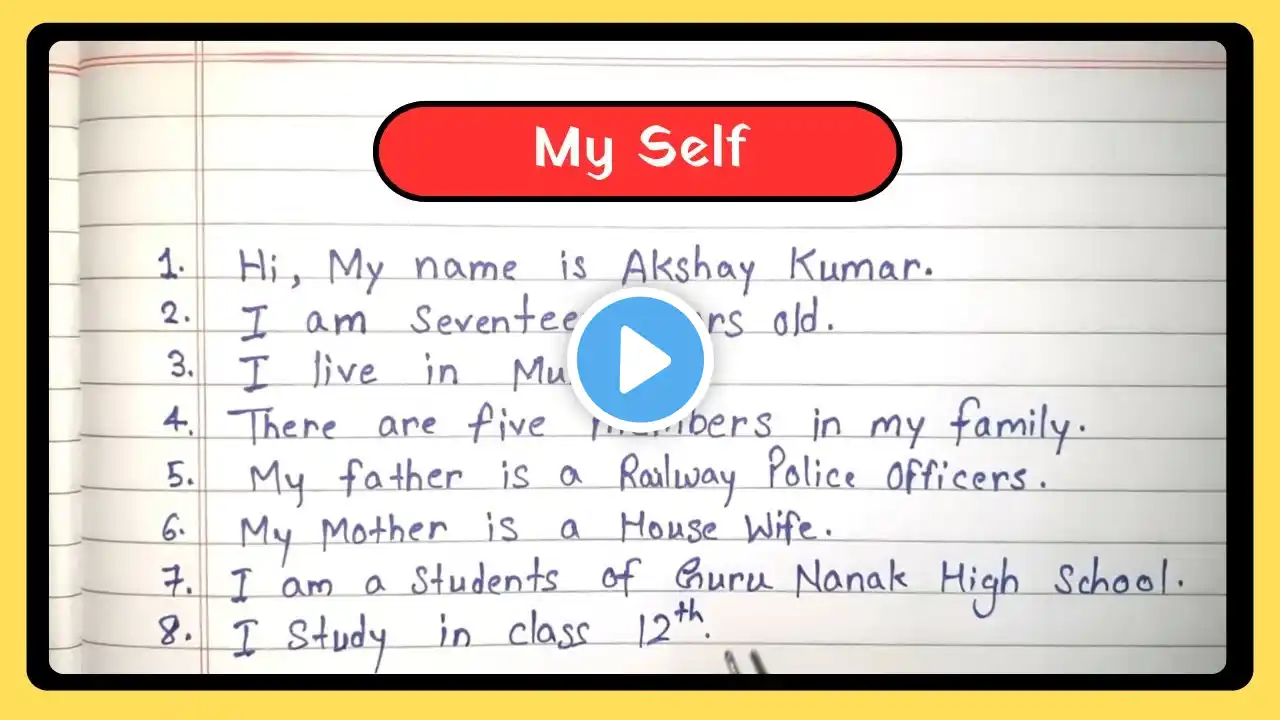 My Self
1. Hi, My name is Akshay Kumar.
2. I am old.
3. I live in
4. There are five in my family.
5. My father is a Railway Police Officers.
6. My Mother is a House Wife.
7. I am a Students of Guru Nanak High School.
8. I Study in class 12th.